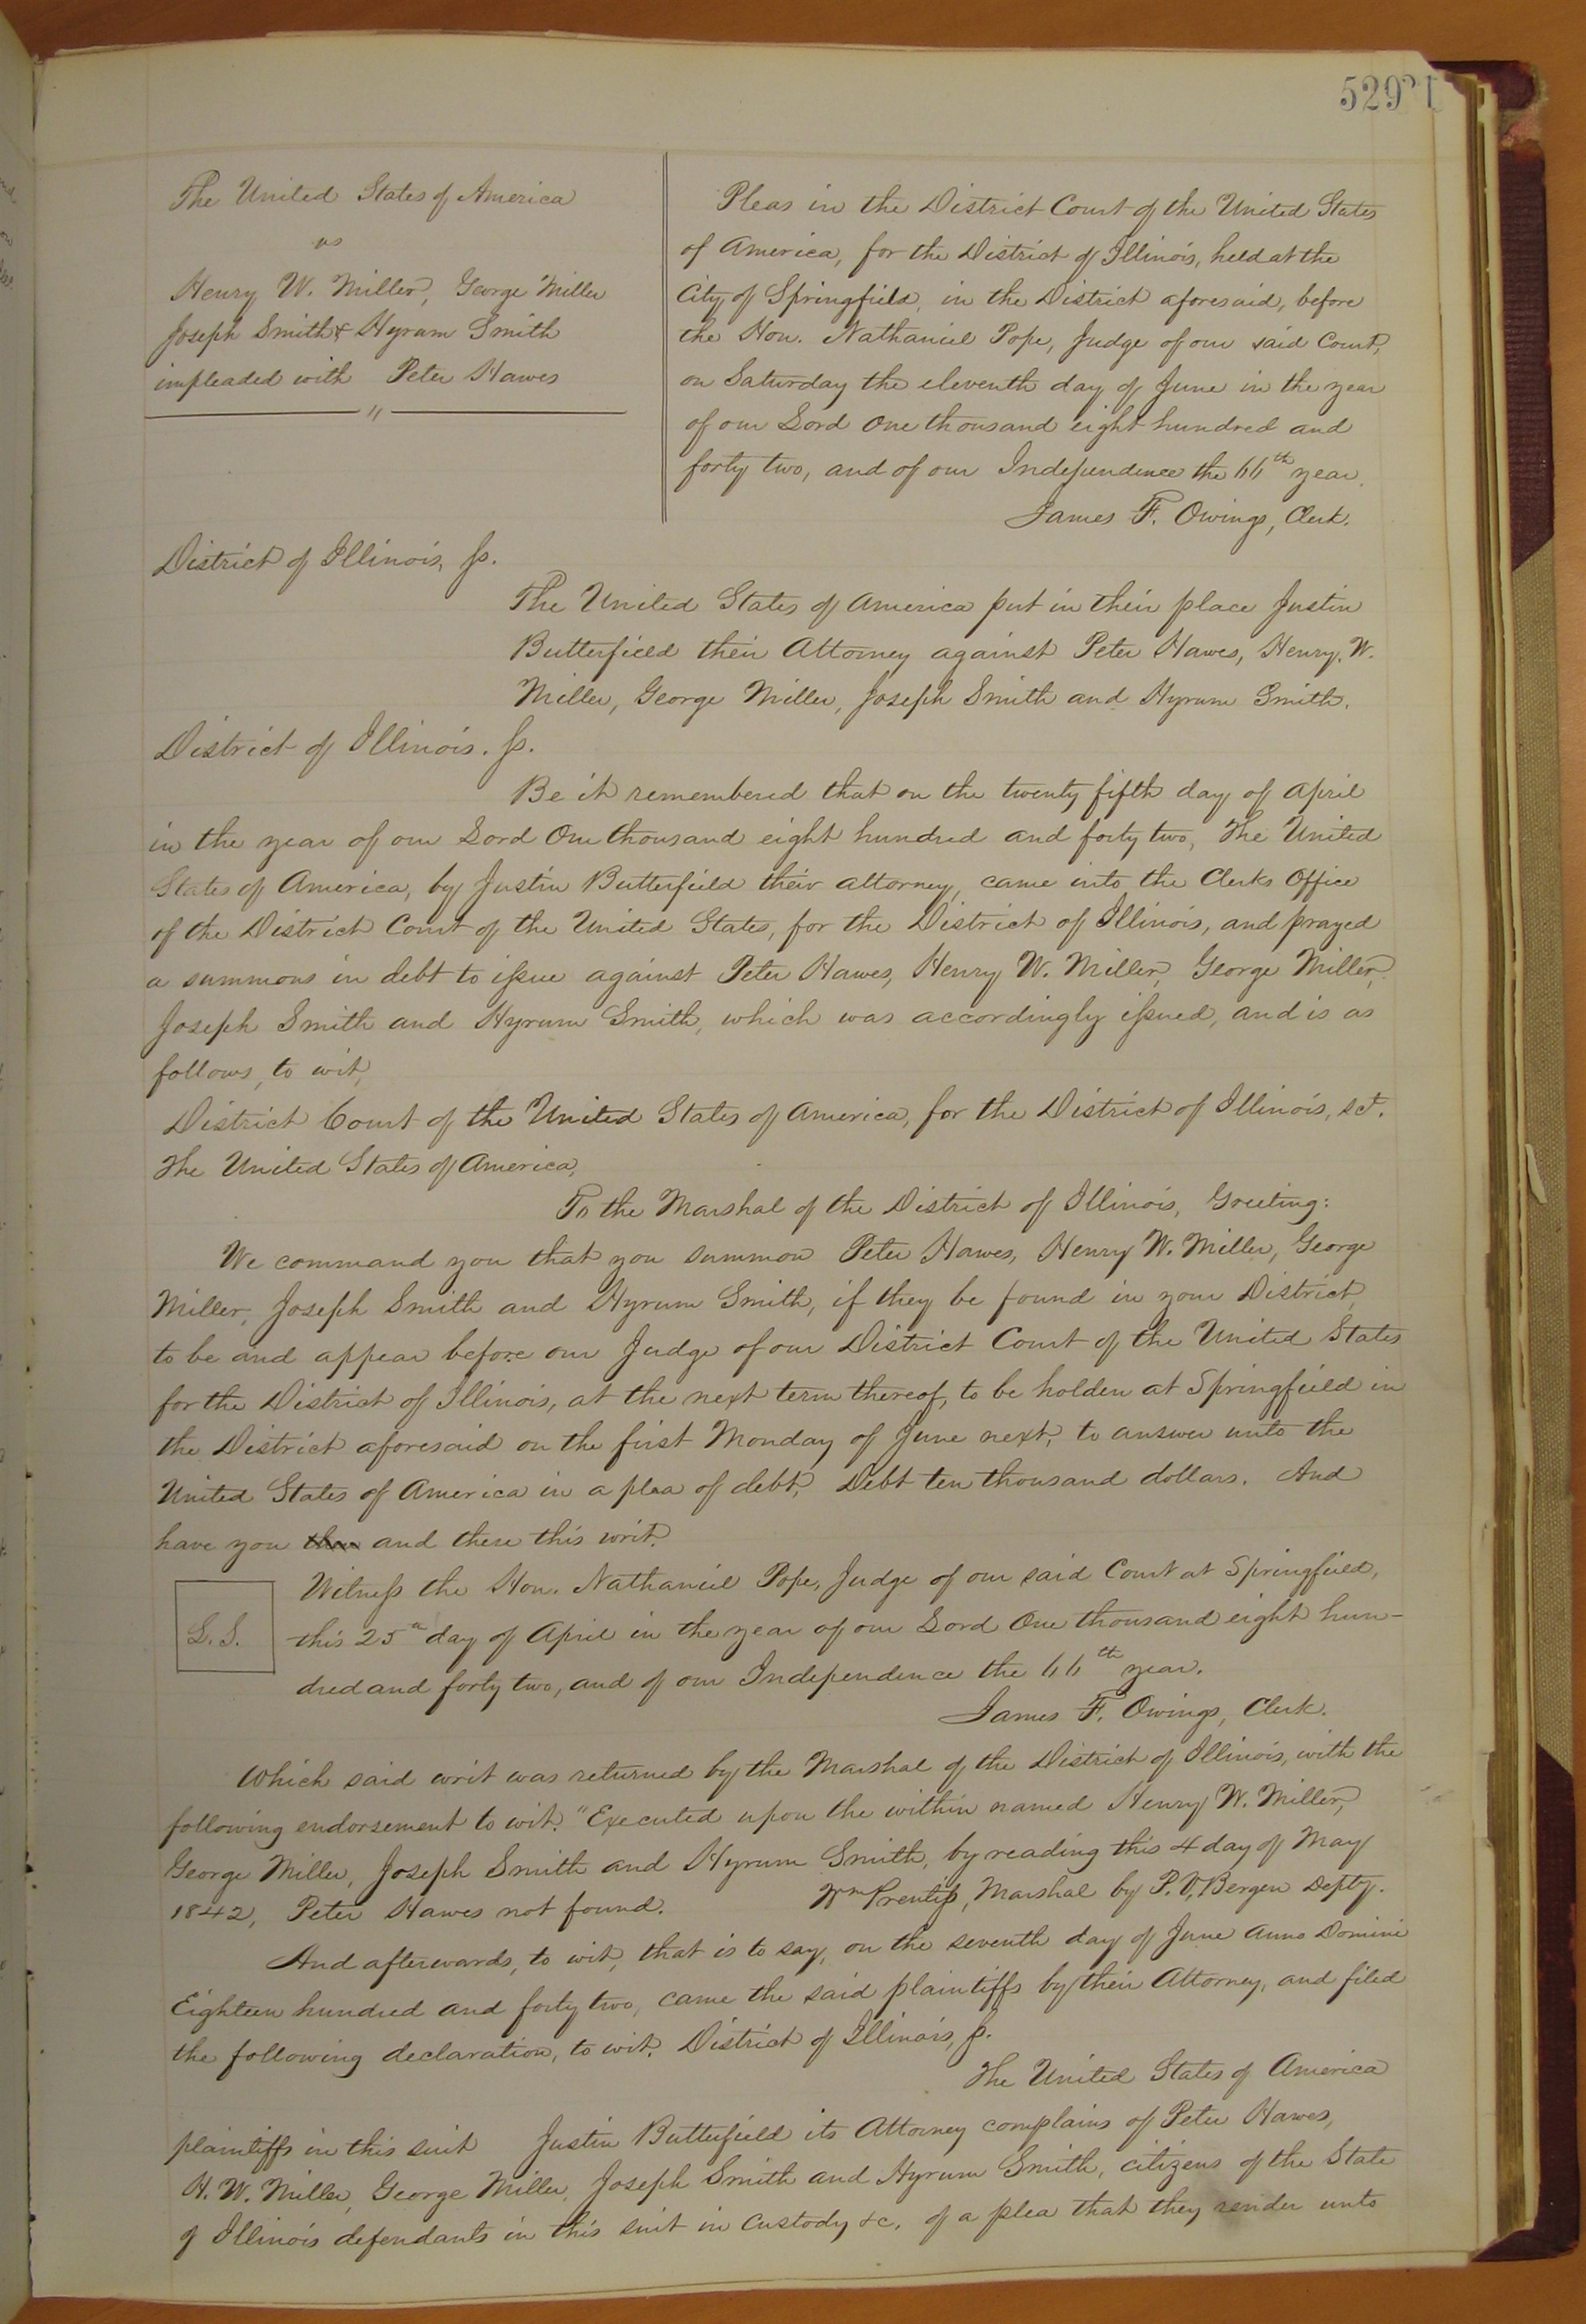 529
The United States of America
vs
Henry W. Miller, George Miller
Joseph Smith & Hyrum Smith
impleaded with Peter Hawes
"
Pleas in the District Court of the United States
of America, for the District of Illinois, held at the
City of Springfield, in the District aforesaid, before
the Hon. Nathaniel Pope, Judge of our said Court,
on Saturday the eleventh day of June in the year
of our Lord One thousand eight hundred and
forty two, and of our Independence the 66th year.
James F. Owings, Clerk.
District of Illinois, ss.
The United States of America put in their place Justin
Butterfield their Attorney against Peter Hawes, Henry. W.
Miller, George Miller, Joseph Smith and Hyrum Smith.
District of Illinois. ss.
Be it remembered that on the twenty fifth day of April
in the year of our Lord One thousand eight hundred and forty two, The United
States of America, by Justin Butterfield their attorney, came into the Clerks Office
of the District Court of the United States, for the District of Illinois, and prayed
a summons in debt to issue against Peter Hawes, Henry W. Miller, George Miller,
Joseph Smith and Hyrum Smith, which was accordingly issued, and is as
follows, to wit,
District Court of the United States of America, for the District of Illinois, sct.
The United States of America,
To the Marshal of the District of Illinois, Greeting:
We command you that you summon Peter Hawes, Henry W. Miller, George
Miller, Joseph Smith and Hyrum Smith, if they be found in your District,
to be and appear before our Judge of our District Court of the United States
for the District of Illinois, at the next term thereof, to be holden at Springfield in
the District aforesaid on the first Monday of June next, to answer unto the
United States of America in a plea of debt, Debt ten thousand dollars. And
have you then and there this writ.
Witness the Hon. Nathaniel Pope, Judge of our said Court at Springfield,
L.S. this 25th day of April in the year of our Lord One thousand eight hun-
dred and forty two, and of our Independence the 66th year.
James F. Owings, Clerk.
Which said writ was returned by the Marshal of the District of Illinois, with the
following endorsement to wit. "Executed upon the within named Henry W. Miller,
George Miller, Joseph Smith and Hyrum Smith, by reading this 4 day of May
1842, Peter Hawes not found. Wm Prentiss, Marshal by P. V. Bergen Depty.
And afterwards, to wit, that is to say, on the seventh day of June Anno Domini
Eighteen hundred and forty two, came the said plaintiffs by their Attorney, and filed
the following declaration, to wit. District of Illinois, ss.
The United States of America
plaintiffs in this suit Justin Butterfield its Attorney complains of Peter Hawes,
H. W. Miller, George Miller, Joseph Smith and Hyrum Smith, citizens of the State
of Illinois defendants in this suit in custody &c. of a plea that they render unto